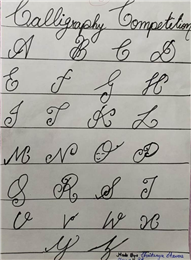 Calligraphy Competetion
A B C D
E F G H
I J K L
M N O P
Q R S T
U V W X
Y Z
Made By:- Chaitanya Sharma